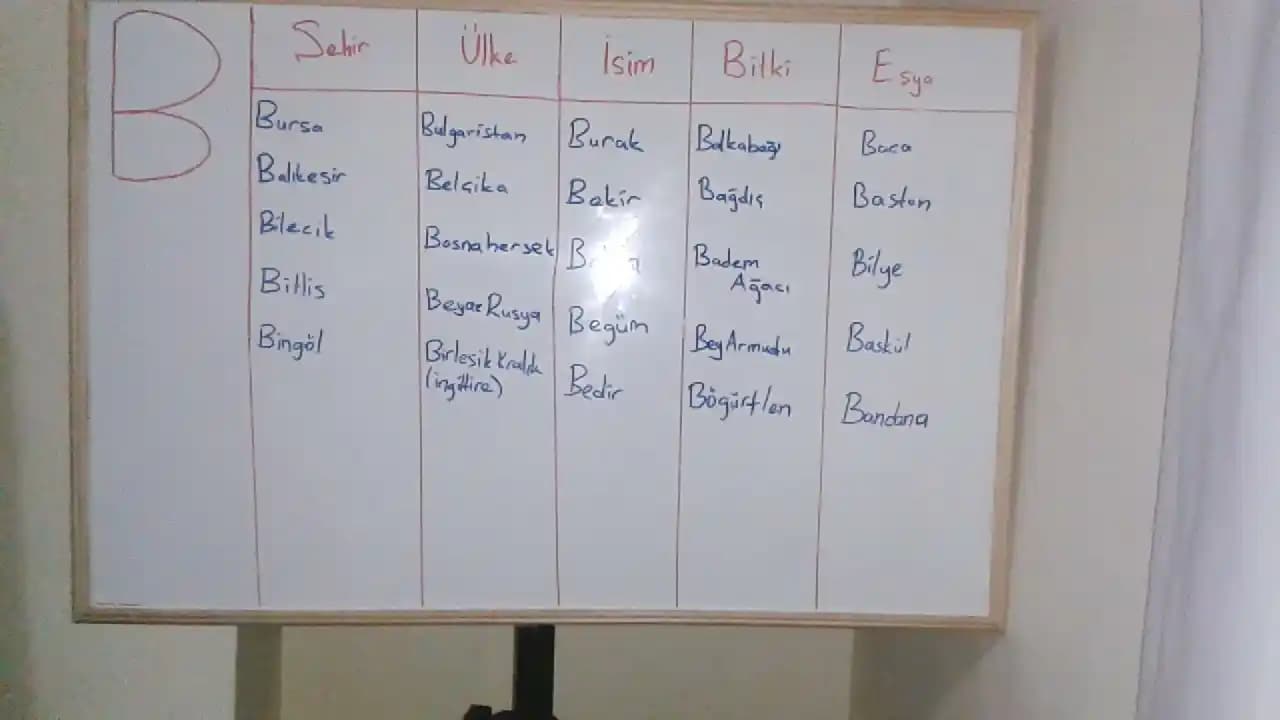 B
Şehir Ülke İsim Bitki Eşya
Bursa Bulgaristan Burak Balkabağı Baca
Balıkesir Belçika Bekir Bağdiş Baston
Bilecik Bosnahersek Badem Bilye
Ağacı
Bitlis Beyaz Rusya Begüm Bey Armudu Baskül
Bingöl Birleşik Krallık Bedir Böğürtlen Bandana
(ingiltire)